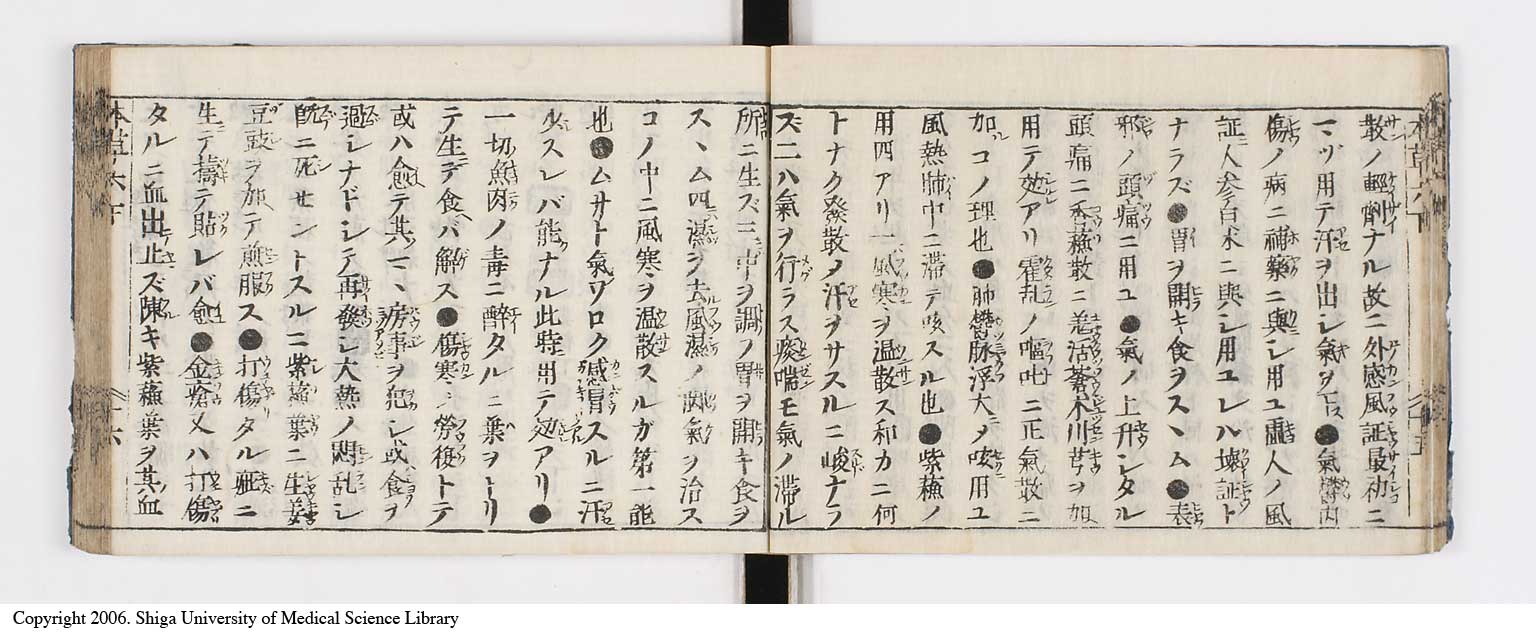 散ノ輕劑ナル故ニ外感風証最初ニ
一ツ用テ汗ヲ出シ氣ヲ
傷ノ病ニ補藥ニ與シ用ユ虛人ノ風
証人参白朮ニ與シ用ユレハ壊証ト
ナラズ●胃ヲ開キ食ヲスヽム●表
邪ノ頭痛ニ用ユ●氣ノ上升シタル
頭痛ニ香蘓散ニ羗活蒼朮川芎ヲ加
用テ効アリ霍乱ノ嘔吐ニ正氣散ニ
加コノ理也●肺懲脉浮大メ咳用ユ
風熱肺中ニ滞テ咳スル也●紫蘓ノ
用四アリ一風寒ヲ温散ス和カニ何
トナク發散メ汗ヲサスルニ峻ナラ
ズ二ハ氣ヲ行ラス痰喘モ氣ノ滞ル
所ニ生ズ三中ヲ調ノ胃ヲ開キ食ヲ
スヽム四濕ヲ去風濕ノ氣ヲ治ス
コノ中ニ風寒ヲ温散スルガ第一能
也●ムサト氣ワロク感冒スルニ汗
少スレバ能ナル此時用テ効アリ●
一切魚肉ノ毒ニ醉タルニ葉ヲトリ
テ生デ食バ解ス●傷寒ノ勞復トテ
或ハ愈テ其一房事ヲ犯シ或食ヲ
過シナドシテ再發シ大熱ノ悶乱シ
既ニ死サントスルニ紫蘓葉ニ生姜
豆豉ヲ加テ煎服ス●打傷タル疵ニ
生テ擣テ貼レバ愈●金瘡又ハ打傷
タルニ血出止ズ陳キ紫蘓葉ヲ其血
Copyright 2006. Shiga University of Medical Science Library